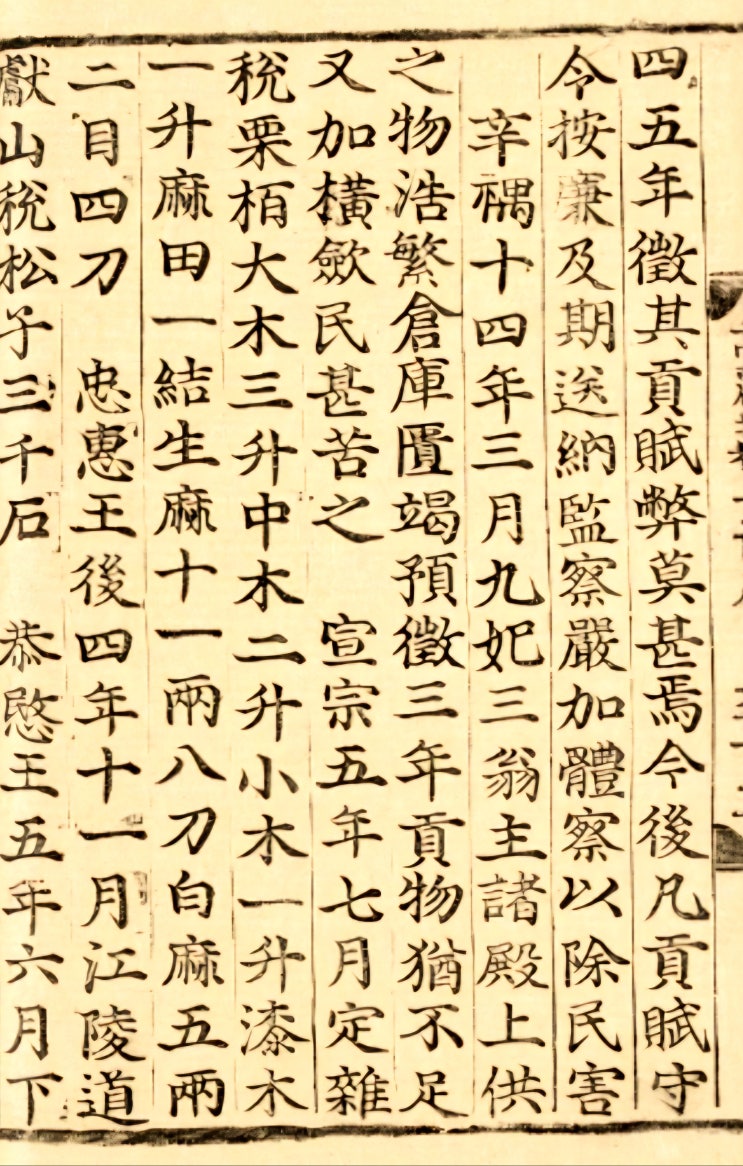 四五年徵其貢賦弊莫甚焉今後凡貢賦守
令按廉及期送納監察嚴加體察以除民害
辛禑十四年三月九妃三翁主諸殿上供
之物浩繁倉庫匱竭預徵三年貢物猶不足
又加橫歛民甚苦之 宣宗五年七月定雜
稅栗栢大木三升中木二升小木一升漆木
一升麻田一結生麻十一兩八刀白麻五兩
二目四刀 忠惠王後四年十一月江陵道
獻山稅松子三千石 恭愍王五年六月下